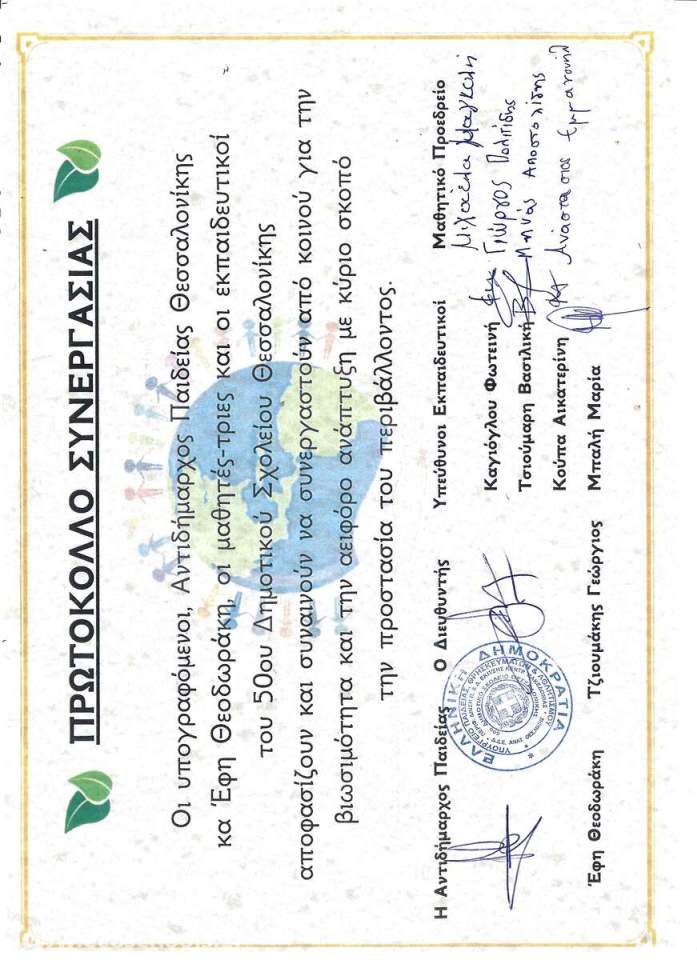 ΠΡΩΤΟΚΟΛΛΟ ΣΥΝΕΡΓΑΣΙΑΣ
Οι υπογραφόμενοι, Αντιδήμαρχος Παιδείας Θεσσαλονίκης
κα Έφη Θεοδωράκη, οι μαθητές-τριες και οι εκπαιδευτικοί
του 50ου Δημοτικού Σχολείου Θεσσαλονίκης
αποφασίζουν και συναινούν να συνεργαστούν από κοινού για την
βιωσιμότητα και την αειφόρο ανάπτυξη με κύριο σκοπό
την προστασία του περιβάλλοντος.
Η Αντιδήμαρχος Παιδείας Ο Διευθυντής Υπεύθυνοι Εκπαιδευτικοί Μαθητικό Προεδρείο
Μιχαέλα
Καγιόγλου Φωτεινή Γιώργος Πολιτίδης
Τσιούμαρη Βασιλική Μηνάς Αποστολίδης
Κούπα Αικατερίνη Αναστάσιος Εμμανουήλ
Έφη Θεοδωράκη Τζιουμάκης Γεώργιος Μπαλή Μαρία
ΕΛΛΗΝΙΚΗ ΔΗΜΟΚΡΑΤΙΑ
ΥΠΟΥΡΓΕΙΟ ΠΑΙΔΕΙΑΣ, ΘΡΗΣΚΕΥΜΑΤΩΝ & ΑΘΛΗΤΙΣΜΟΥ